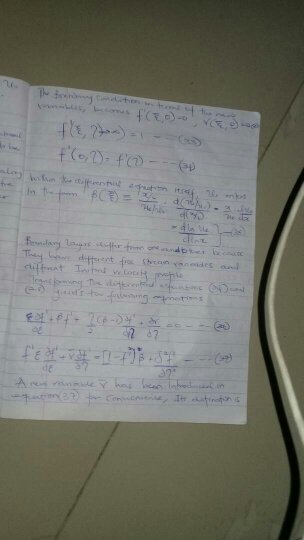 The boundary Condition in term of the new
variables, becomes f'(ξ,0)=0, V(ξ,0)=0
f'(ξ, η→∞) = 1 --- (33)
f'(0,η) = f'(η) ---- (34)
Within the differential equation itself, Ue enters
In the form β(ξ) = x/L / Ue/U∞ · d(Ue/U∞) / d(x/L) = x / Ue · dUe / dx
= d ln Ue / d ln x --- (35)
Boundary layers differ from one another because
They have different free stream variables and
different Initial velocity profile
Transforming the differential equations (24) and
(25) yields to following equations
ξ ∂f'/∂ξ + β f' + η/2 (β-1) ∂f'/∂η + ∂V/∂η = 0 --- (36)
f' ξ ∂f'/∂ξ + V ∂f'/∂η = [1-f'²] β + ∂²f'/∂η² --- (37)
A new variable V has been introduced in
equation (37) for Convenience, Its definition is